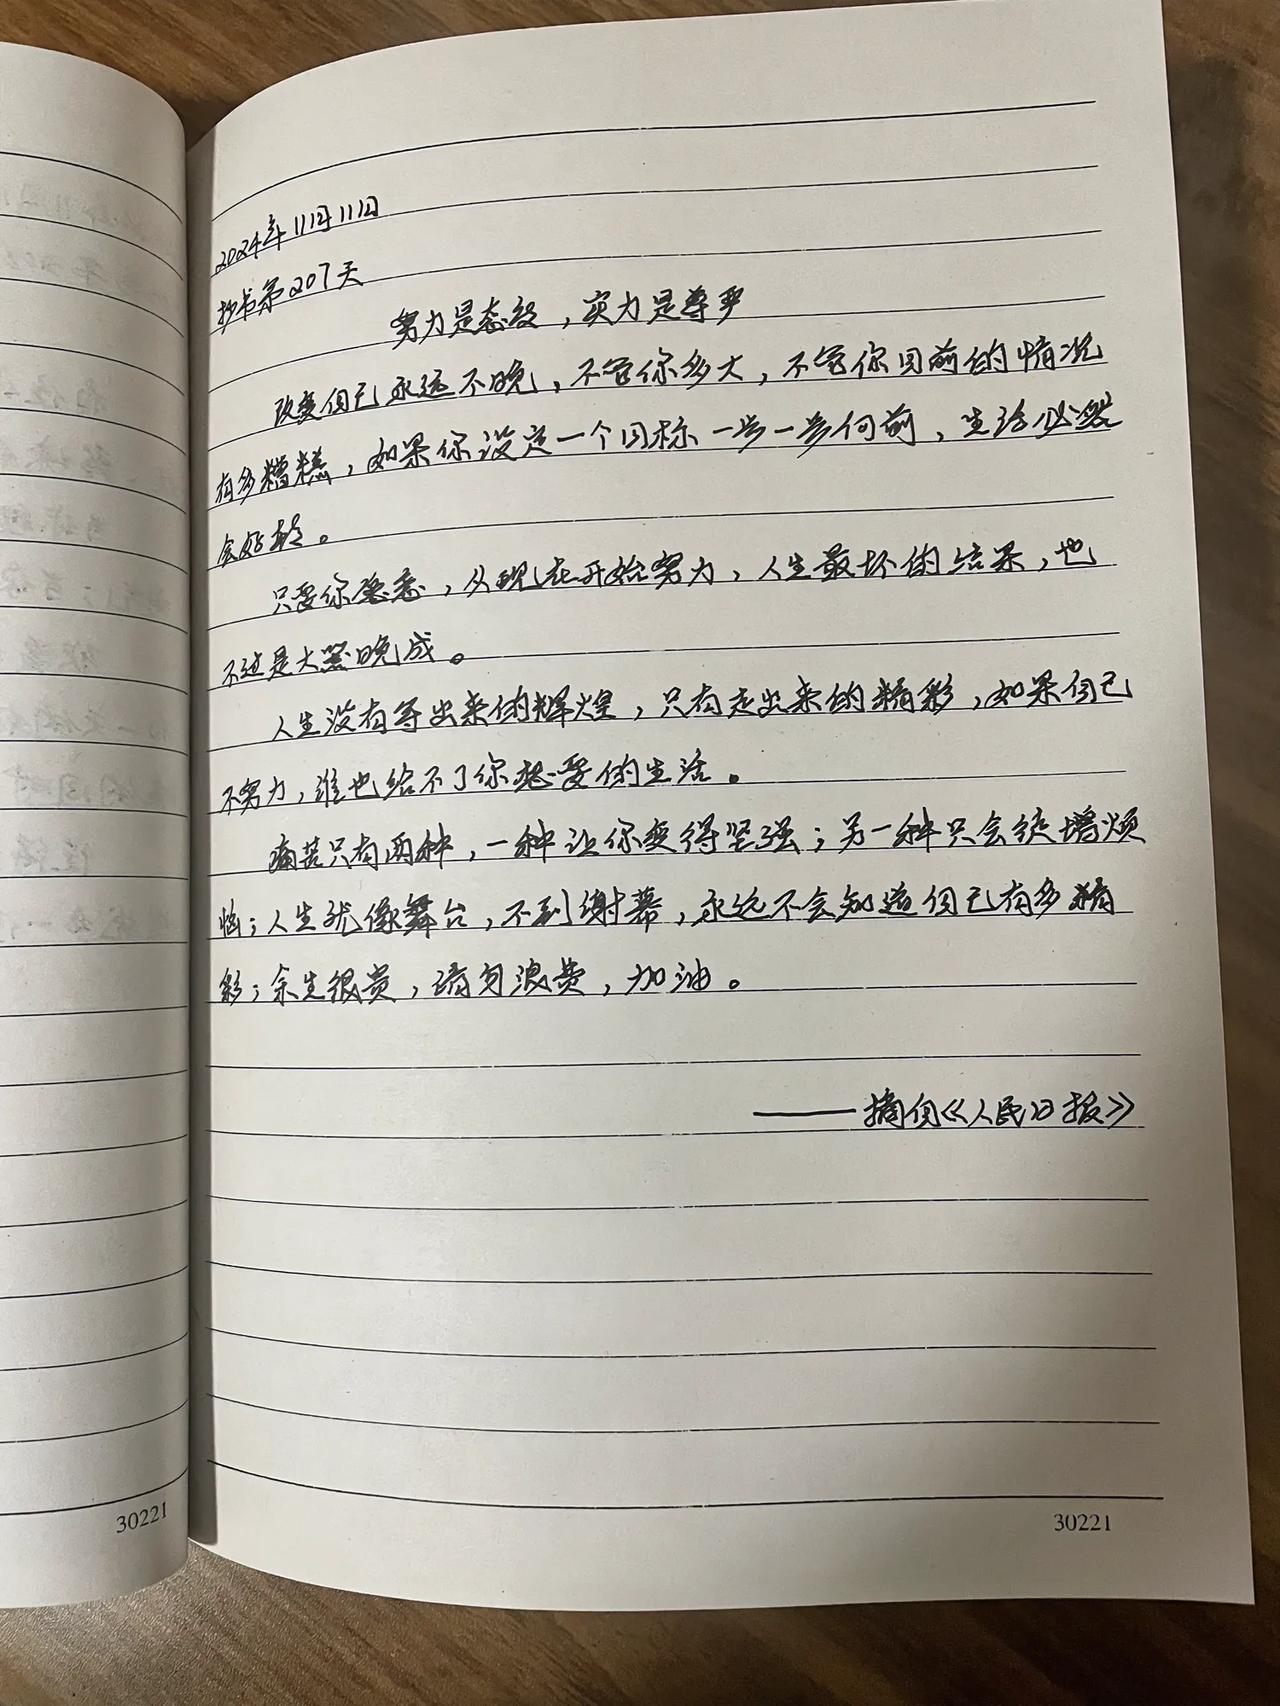 2024年11月11日
抄书第207天
努力是态度，实力是尊严
改变自己永远不晚，不管你多大，不管你目前的情况
有多糟糕，如果你设定一个目标一步一步向前，生活必然
会好转。
只要你愿意，从现在开始努力，人生最坏的结果，也
不过是大器晚成。
人生没有等出来的辉煌，只有走出来的精彩，如果自己
不努力，谁也给不了你想要的生活。
痛苦只有两种，一种让你变得坚强；另一种只会徒增烦
恼；人生犹像舞台，不到谢幕，永远不会知道自己有多精
彩；余生很贵，请勿浪费，加油。
——摘自《人民日报》
30221
30221